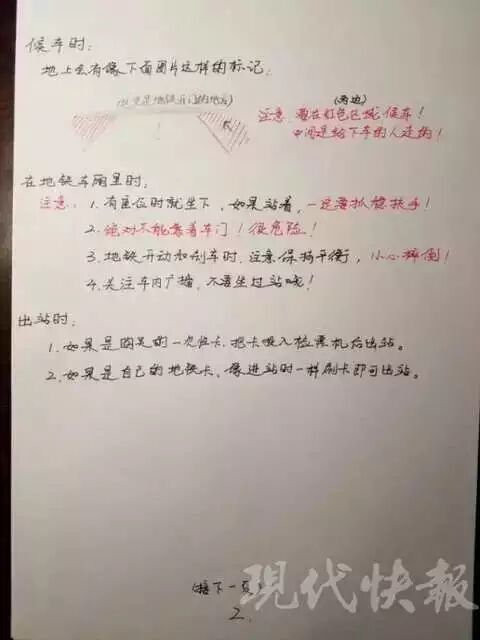 候车时：
地上会有像下面图片这样的标记：
(这里是地铁开门的地方)
(两边)
注意：要在红色区域候车！
中间是给下车的人走的！
在地铁车厢里时：
注意：1. 有座位时就坐下，如果站着，一定要抓稳扶手！
2. 绝对不能靠着车门！很危险！
3. 地铁开动和刹车时，注意保持平衡，小心摔倒！
4. 关注车内广播，不要坐过站哦！
出站时：
1. 如果是购买的一次性卡，把卡吸入检票机后出站。
2. 如果是自己的地铁卡，像进站时一样刷卡即可出站。
(接下一页)
2.
现代快報